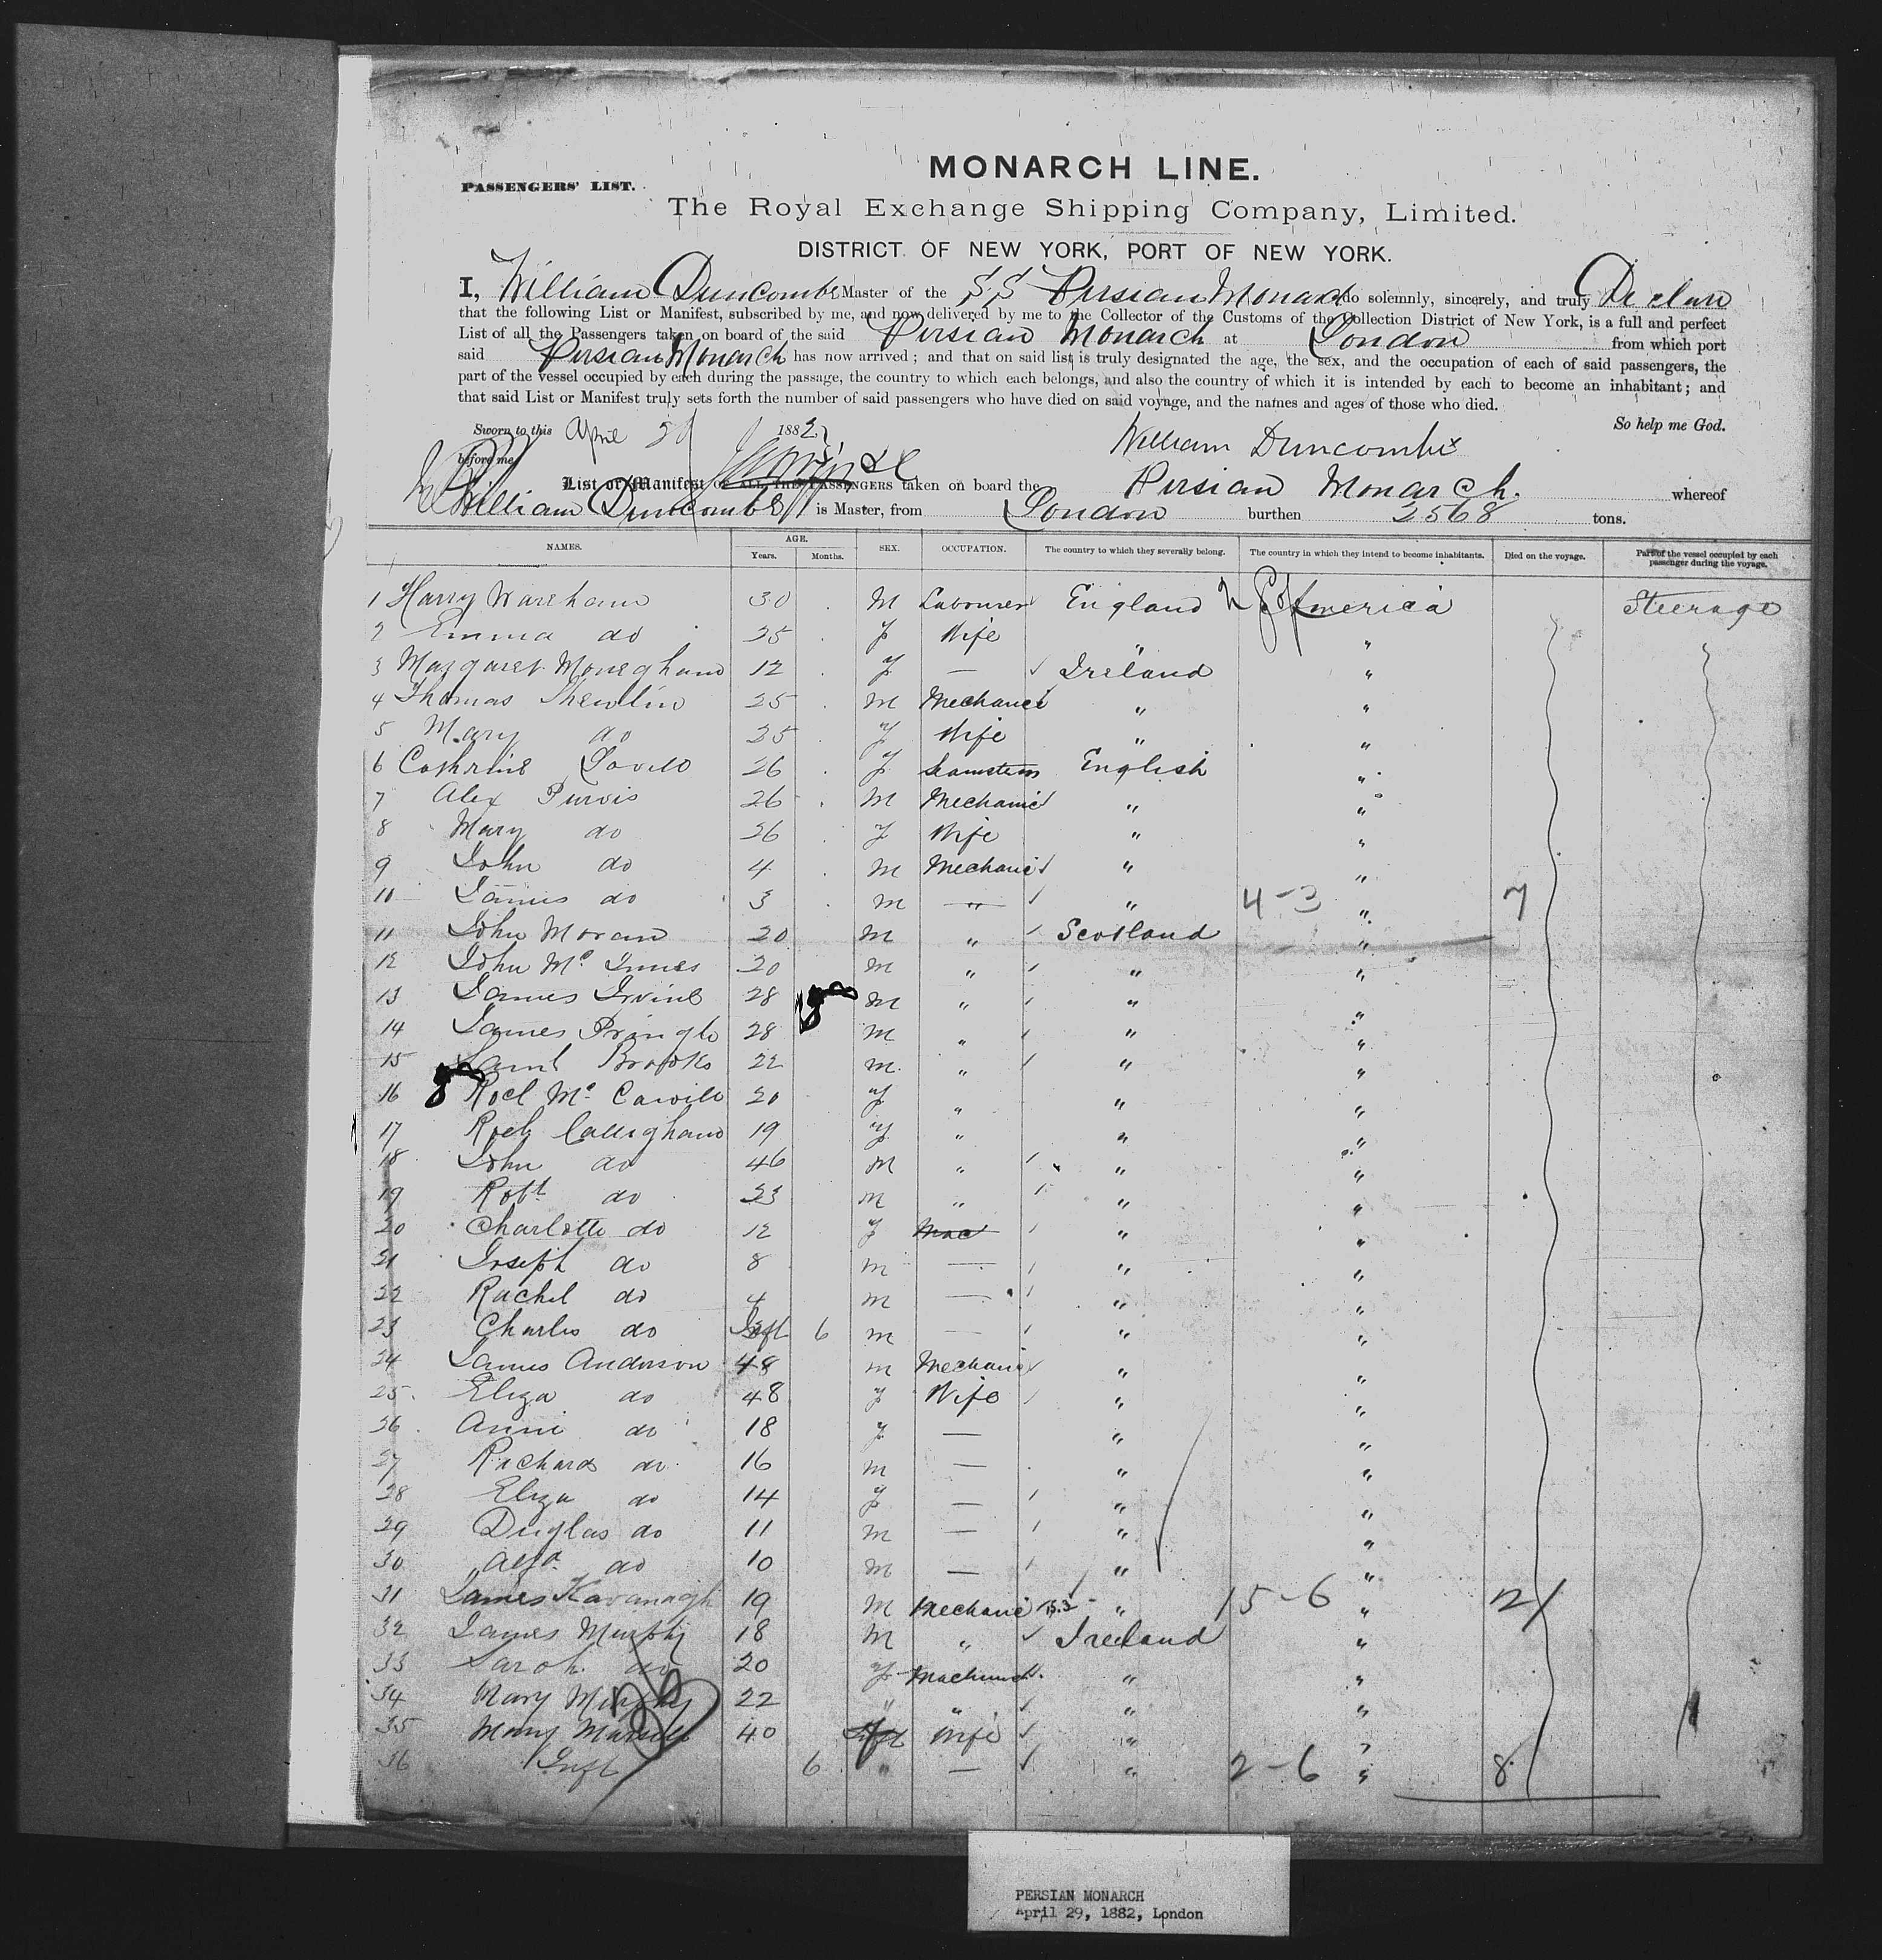 MONARCH LINE.
PASSENGERS' LIST.
The Royal Exchange Shipping Company, Limited.
DISTRICT OF NEW YORK, PORT OF NEW YORK.
I, William Duncombe Master of the S.S Persian Monarch do solemnly, sincerely, and truly Declare
that the following List or Manifest, subscribed by me, and now delivered by me to the Collector of the Customs of the Collection District of New York, is a full and perfect
List of all the Passengers taken on board of the said Persian Monarch at London from which port
said Persian Monarch has now arrived; and that on said list is truly designated the age, the sex, and the occupation of each of said passengers, the
part of the vessel occupied by each during the passage, the country to which each belongs, and also the country of which it is intended by each to become an inhabitant; and
that said List or Manifest truly sets forth the number of said passengers who have died on said voyage, and the names and ages of those who died.
So help me God.
Sworn to this April 29 1882,
before me, William Duncombe
List or Manifest OF ALL THE PASSENGERS taken on board the Persian Monarch. whereof
William Duncombe is Master, from London burthen 2568 tons.
NAMES. AGE. Years. Months. SEX. OCCUPATION. The country to which they severally belong. The country in which they intend to become inhabitants. Died on the voyage. Part of the vessel occupied by each passenger during the voyage.
1 Harry Wareham 30 M Labourer England America Steerage
2 Emma do 25 F Wife " "
3 Margaret Moneghan 12 F — Ireland "
4 Thomas 25 M Mechanic " "
5 Mary do 25 F Wife " "
6 26 F English "
7 Alex Purvis 26 M Mechanic " "
8 Mary do 26 F Wife " "
9 John do 4 M Mechanic " "
10 James do 3 M " " 4-3 " 7
11 John Moran 20 M " Scotland "
12 John Mc Innes 20 M " " "
13 James Irvine 28 M " " "
14 James Pringle 28 M " " "
15 Saml Brooks 22 M " " "
16 20 F " " "
17 Callighan 19 F " " "
18 John do 46 M " " "
19 Robt do 23 M " " "
20 Charlotte do 12 F Mec " "
21 Joseph do 8 M — " "
22 Rachel do 4 M — " "
23 Charles do Inft 6 M — " "
24 James Anderson 48 M Mechanic " "
25 Eliza do 48 F Wife " "
26 Annie do 18 F — " "
27 Richard do 16 M — " "
28 Eliza do 14 F — " "
29 Duglas do 11 M — " "
30 Alfd. do 10 M — " "
31 James Kavanagh 19 M Mechanic " 15-6 " 21
32 James Murphy 18 M " Ireland "
33 Sarah do 20 F " "
34 Mary Murphy 22 " " " "
35 Mary 40 Wife " "
36 Inft 6 " — " 2-6 " 8
PERSIAN MONARCH
April 29, 1882, London